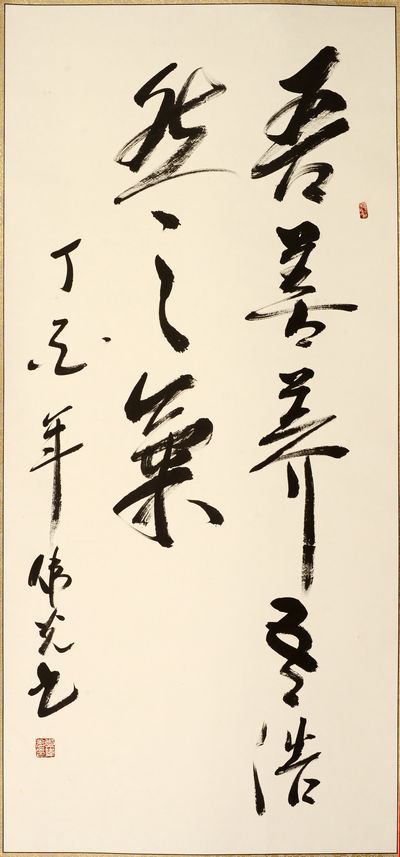 吾善养吾浩
然之氣
丁亥年 伟光书